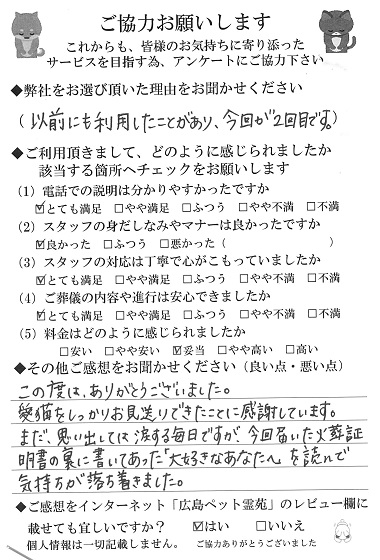 ご協力お願いします
これからも、皆様のお気持ちに寄り添った
サービスを目指す為、アンケートにご協力下さい
◆弊社をお選び頂いた理由をお聞かせください
(以前にも利用したことがあり、今回が2回目です。)
◆ご利用頂きまして、どのように感じられましたか
該当する箇所へチェックをお願いします
(1) 電話での説明は分かりやすかったですか
☑とても満足 □やや満足 □ふつう □やや不満 □不満
(2) スタッフの身だしなみやマナーは良かったですか
☑良かった □ふつう □悪かった ( )
(3) スタッフの対応は丁寧で心がこもっていましたか
☑とても満足 □やや満足 □ふつう □やや不満 □不満
(4) ご葬儀の内容や進行は安心できましたか
☑とても満足 □やや満足 □ふつう □やや不満 □不満
(5) 料金はどのように感じられましたか
□安い □やや安い ☑妥当 □やや高い □高い
◆その他ご感想をお聞かせください (良い点・悪い点)
この度は、ありがとうございました。
愛猫をしっかりお見送りできたことに感謝しています。
まだ、思い出しては涙する毎日ですが、今回届いた火葬証
明書の裏に書いてあった「大好きなあなたへ」を読んで
気持ちが落ち着きました。
◆ご感想をインターネット「広島ペット霊苑」のレビュー欄に
載せても宜しいですか? ☑はい □いいえ
個人情報は一切記載しません。 ご協力ありがとうございました